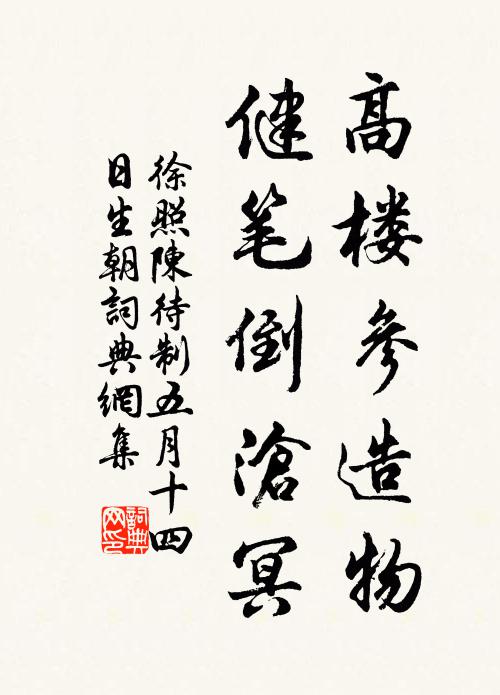 高楼参造物
健笔倒滄冥
徐照陳待制五月十四
日生朝詞典網集
詞典
网印